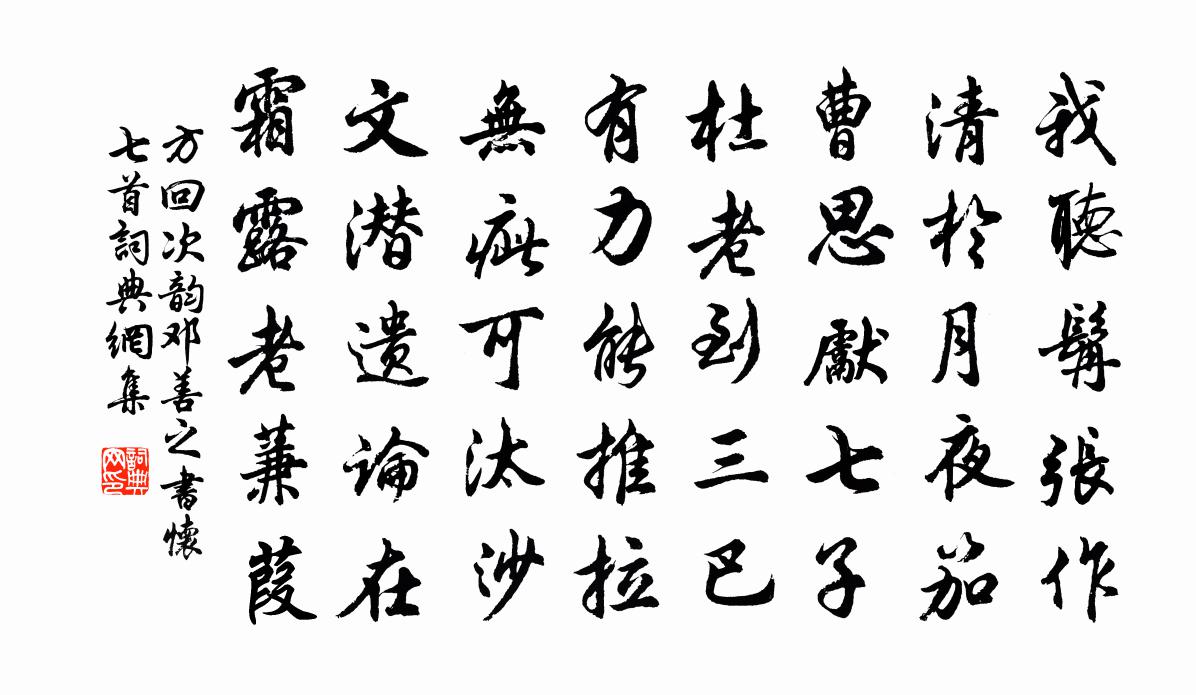 我聽髯張作
清於月夜笳
曹思獻七子
杜老到三巴
有力能推拉
無疵可汰沙
文潜遗論在
霜露老蒹葭
方回次韵邓善之書懷
七首詞典網集
詞典网印